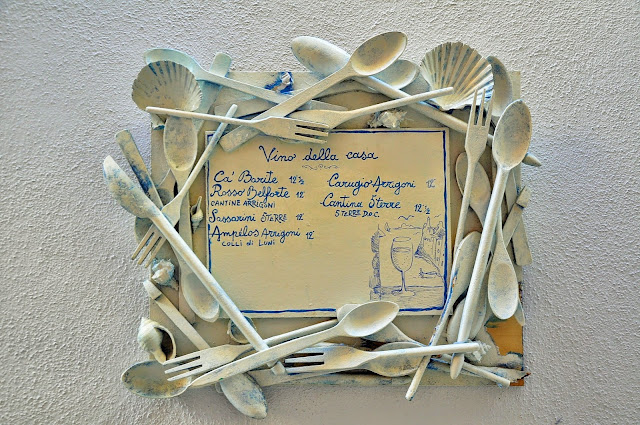 Vino della casa
Ca' Barite 12½
Rosso Belforte 12
CANTINE ARRIGONI
Sassarini 5TERRE 12
Ampélos Arrigoni 12
COLLI di LUNI
Carugio Arrigoni 12
Cantina 5terre 12½
5TERRE D.O.C.